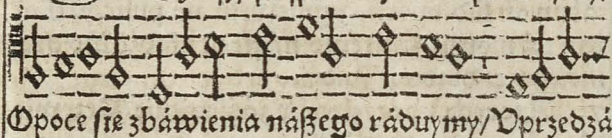 Opoce sie zbáwienia nászego ráduymy/ Vprzedzá